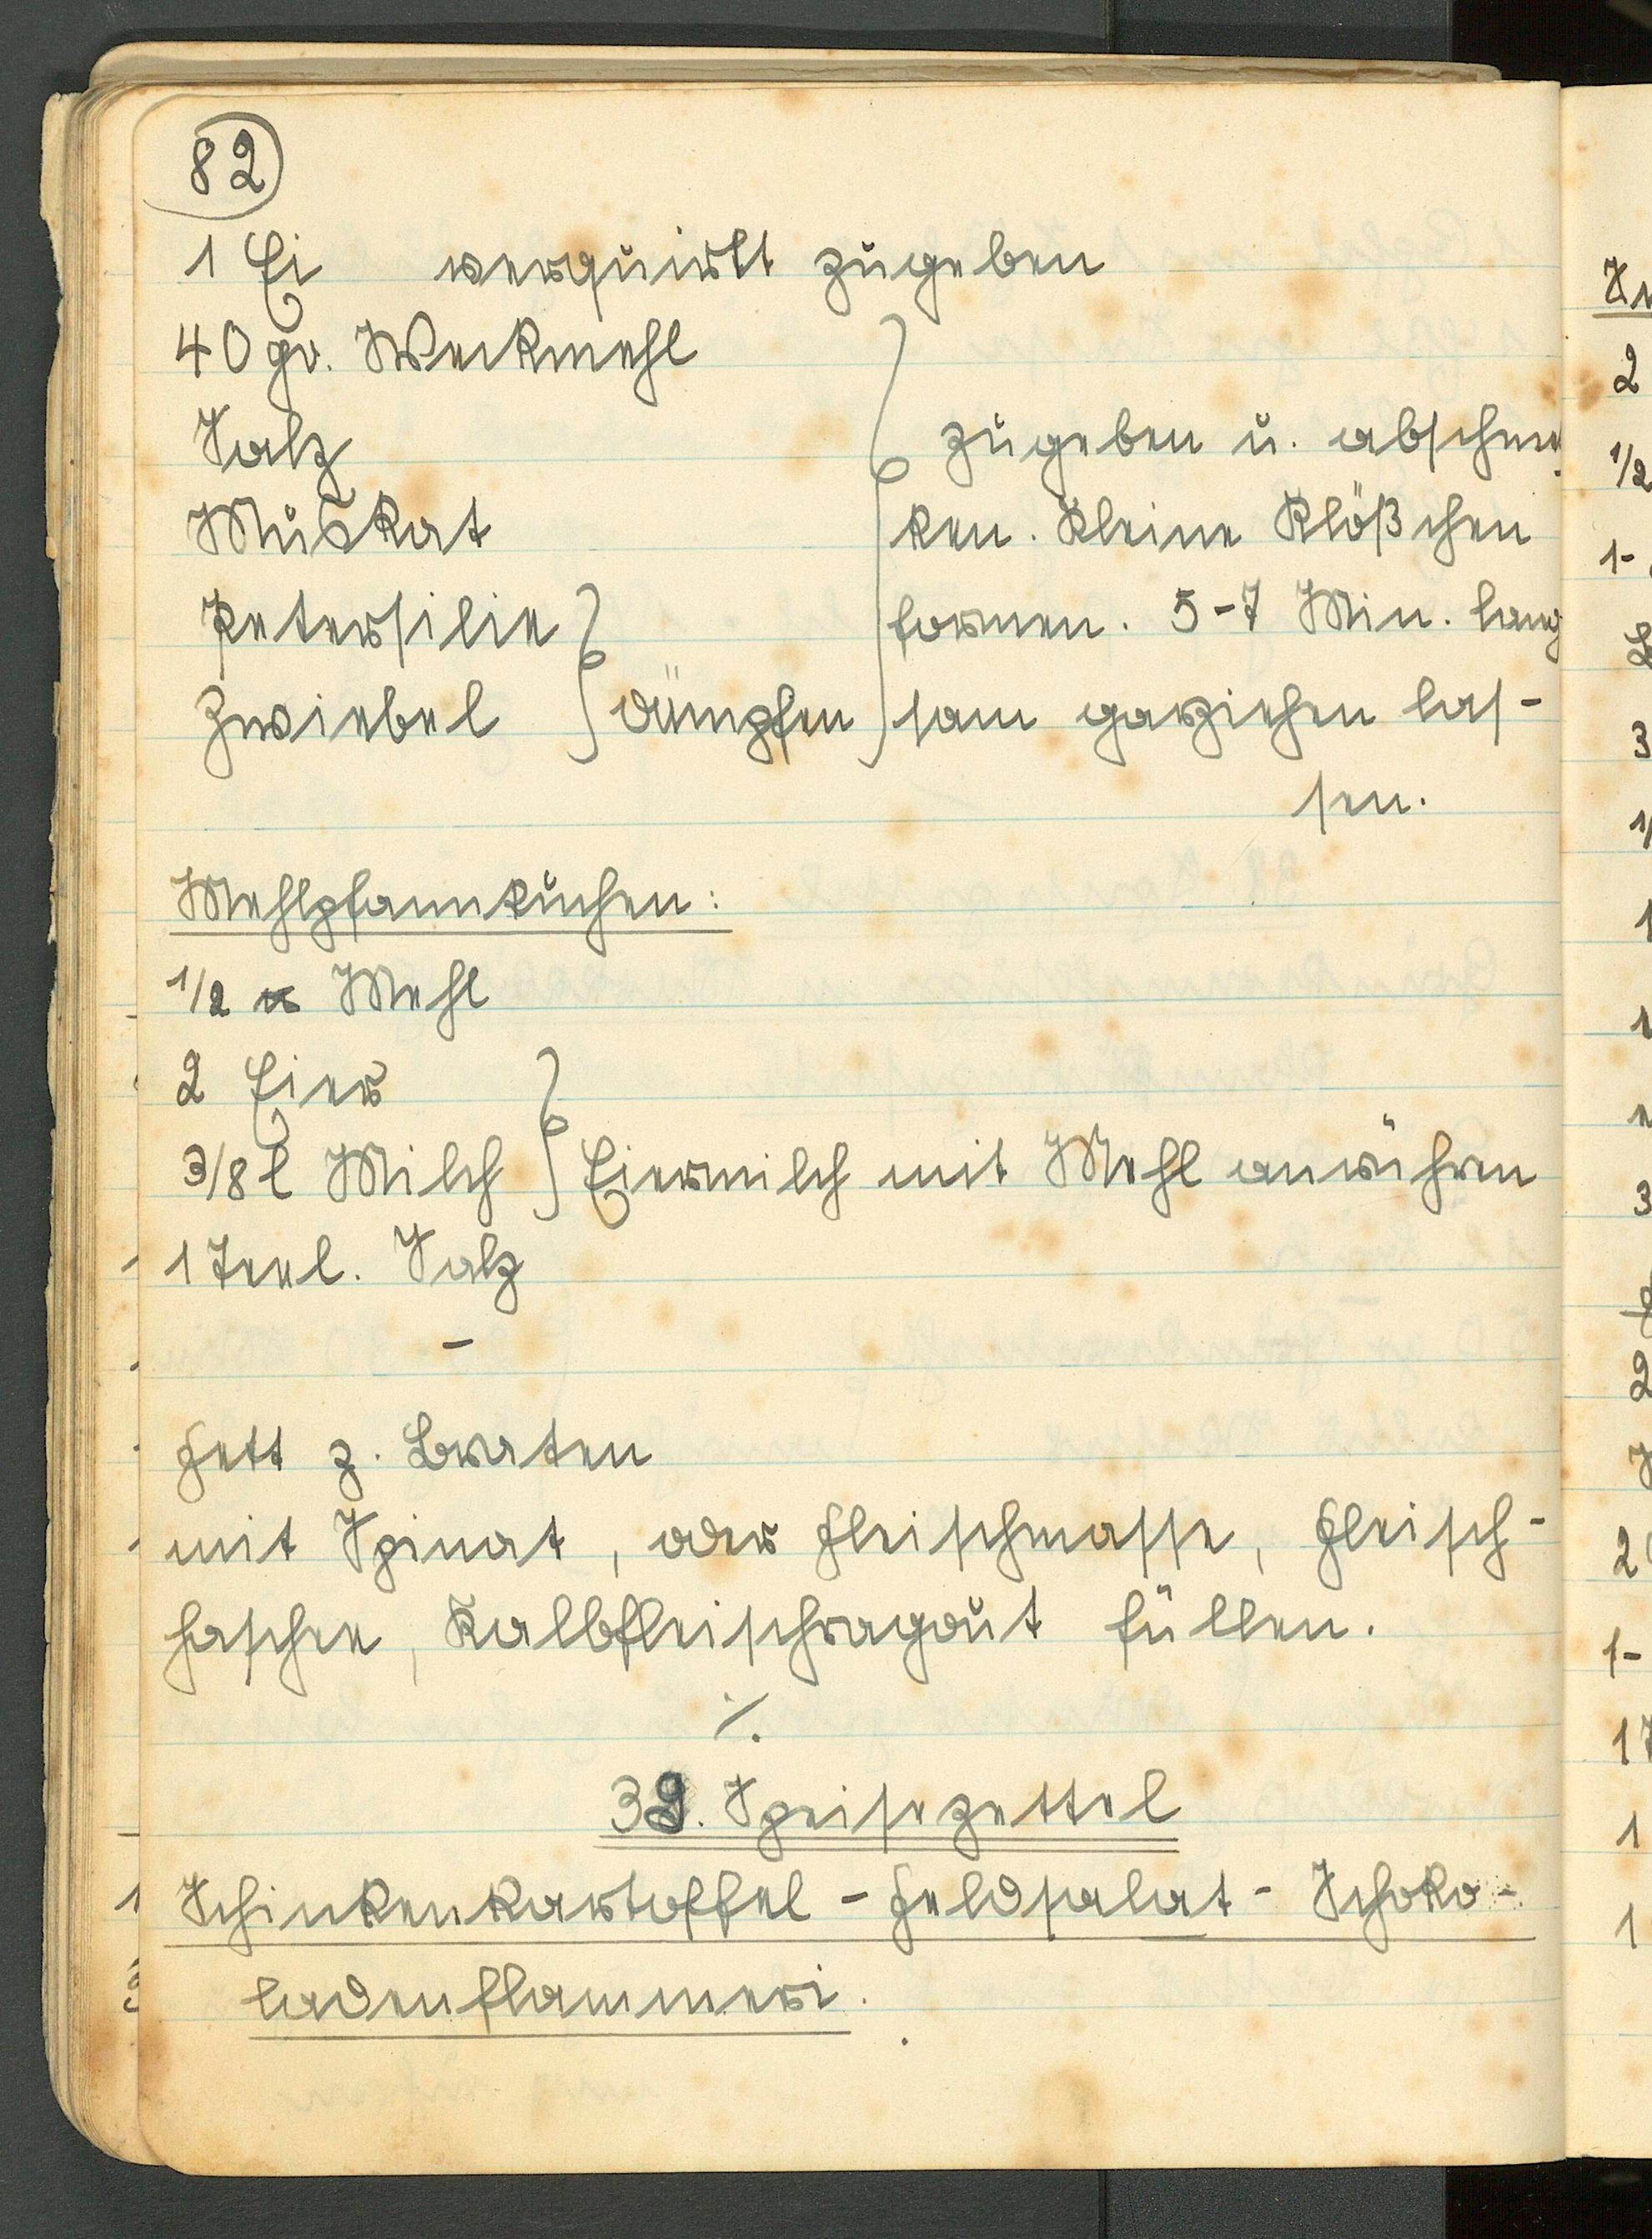 82
1 Ei verquirlt zugeben
40 gr. Weckmehl
Salz zugeben u. abschmek
Muskat ken. Kleine Klößchen
Petersilie formen. 5-7 Min. lang
Zwiebel dämpfen sam garziehen las-
sen.
Mehlpfannkuchen:
1/2 ℔ Mehl
2 Eier
3/8 l Milch Eiermilch mit Mehl anrühren
1 Teel. Salz
-
Fett z. Braten
mit Spinat, oder Fleischmasse, Fleisch-
haschee, Kalbfleischragout füllen.
./.
39. Speisezettel
Schinkenkartoffel - Feldsalat - Schoko-
ladenflammeri.